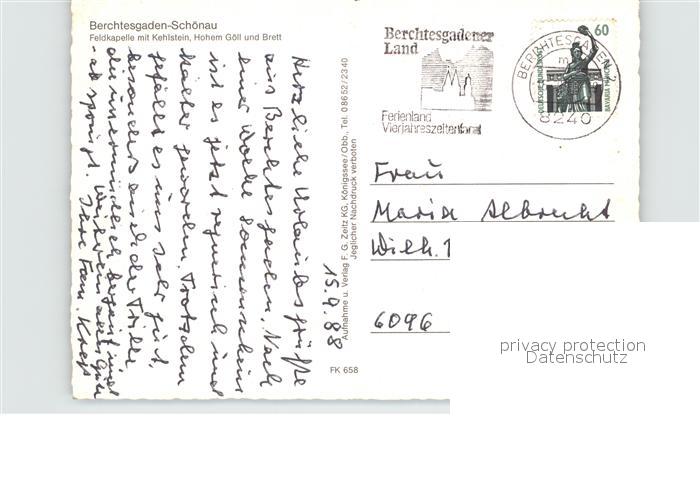 Berchtesgaden-Schönau
Feldkapelle mit Kehlstein, Hohem Göll und Brett
15.9.88
Herzliche Urlaubsgrüße
aus Berchtesgaden. Nach
einer Woche Sonnenschein
ist es jetzt regnerisch und
kälter geworden. Trotzdem
gefällt es uns sehr gut,
besonders auch der
die unermüdlich
Ihre Fam.
Aufnahme u. Verlag F. G. Zeitz KG, Königssee/Obb., Tel. 08652/2340
Jeglicher Nachdruck verboten
FK 658
Berchtesgadener
Land
Ferienland
Vierjahreszeitenland
BERCHTESGADEN
8240
60
DEUTSCHE BUNDESPOST
BAVARIA MÜNCHEN
Frau
Maria Albrecht
Wilh.
6096
privacy protection
Datenschutz